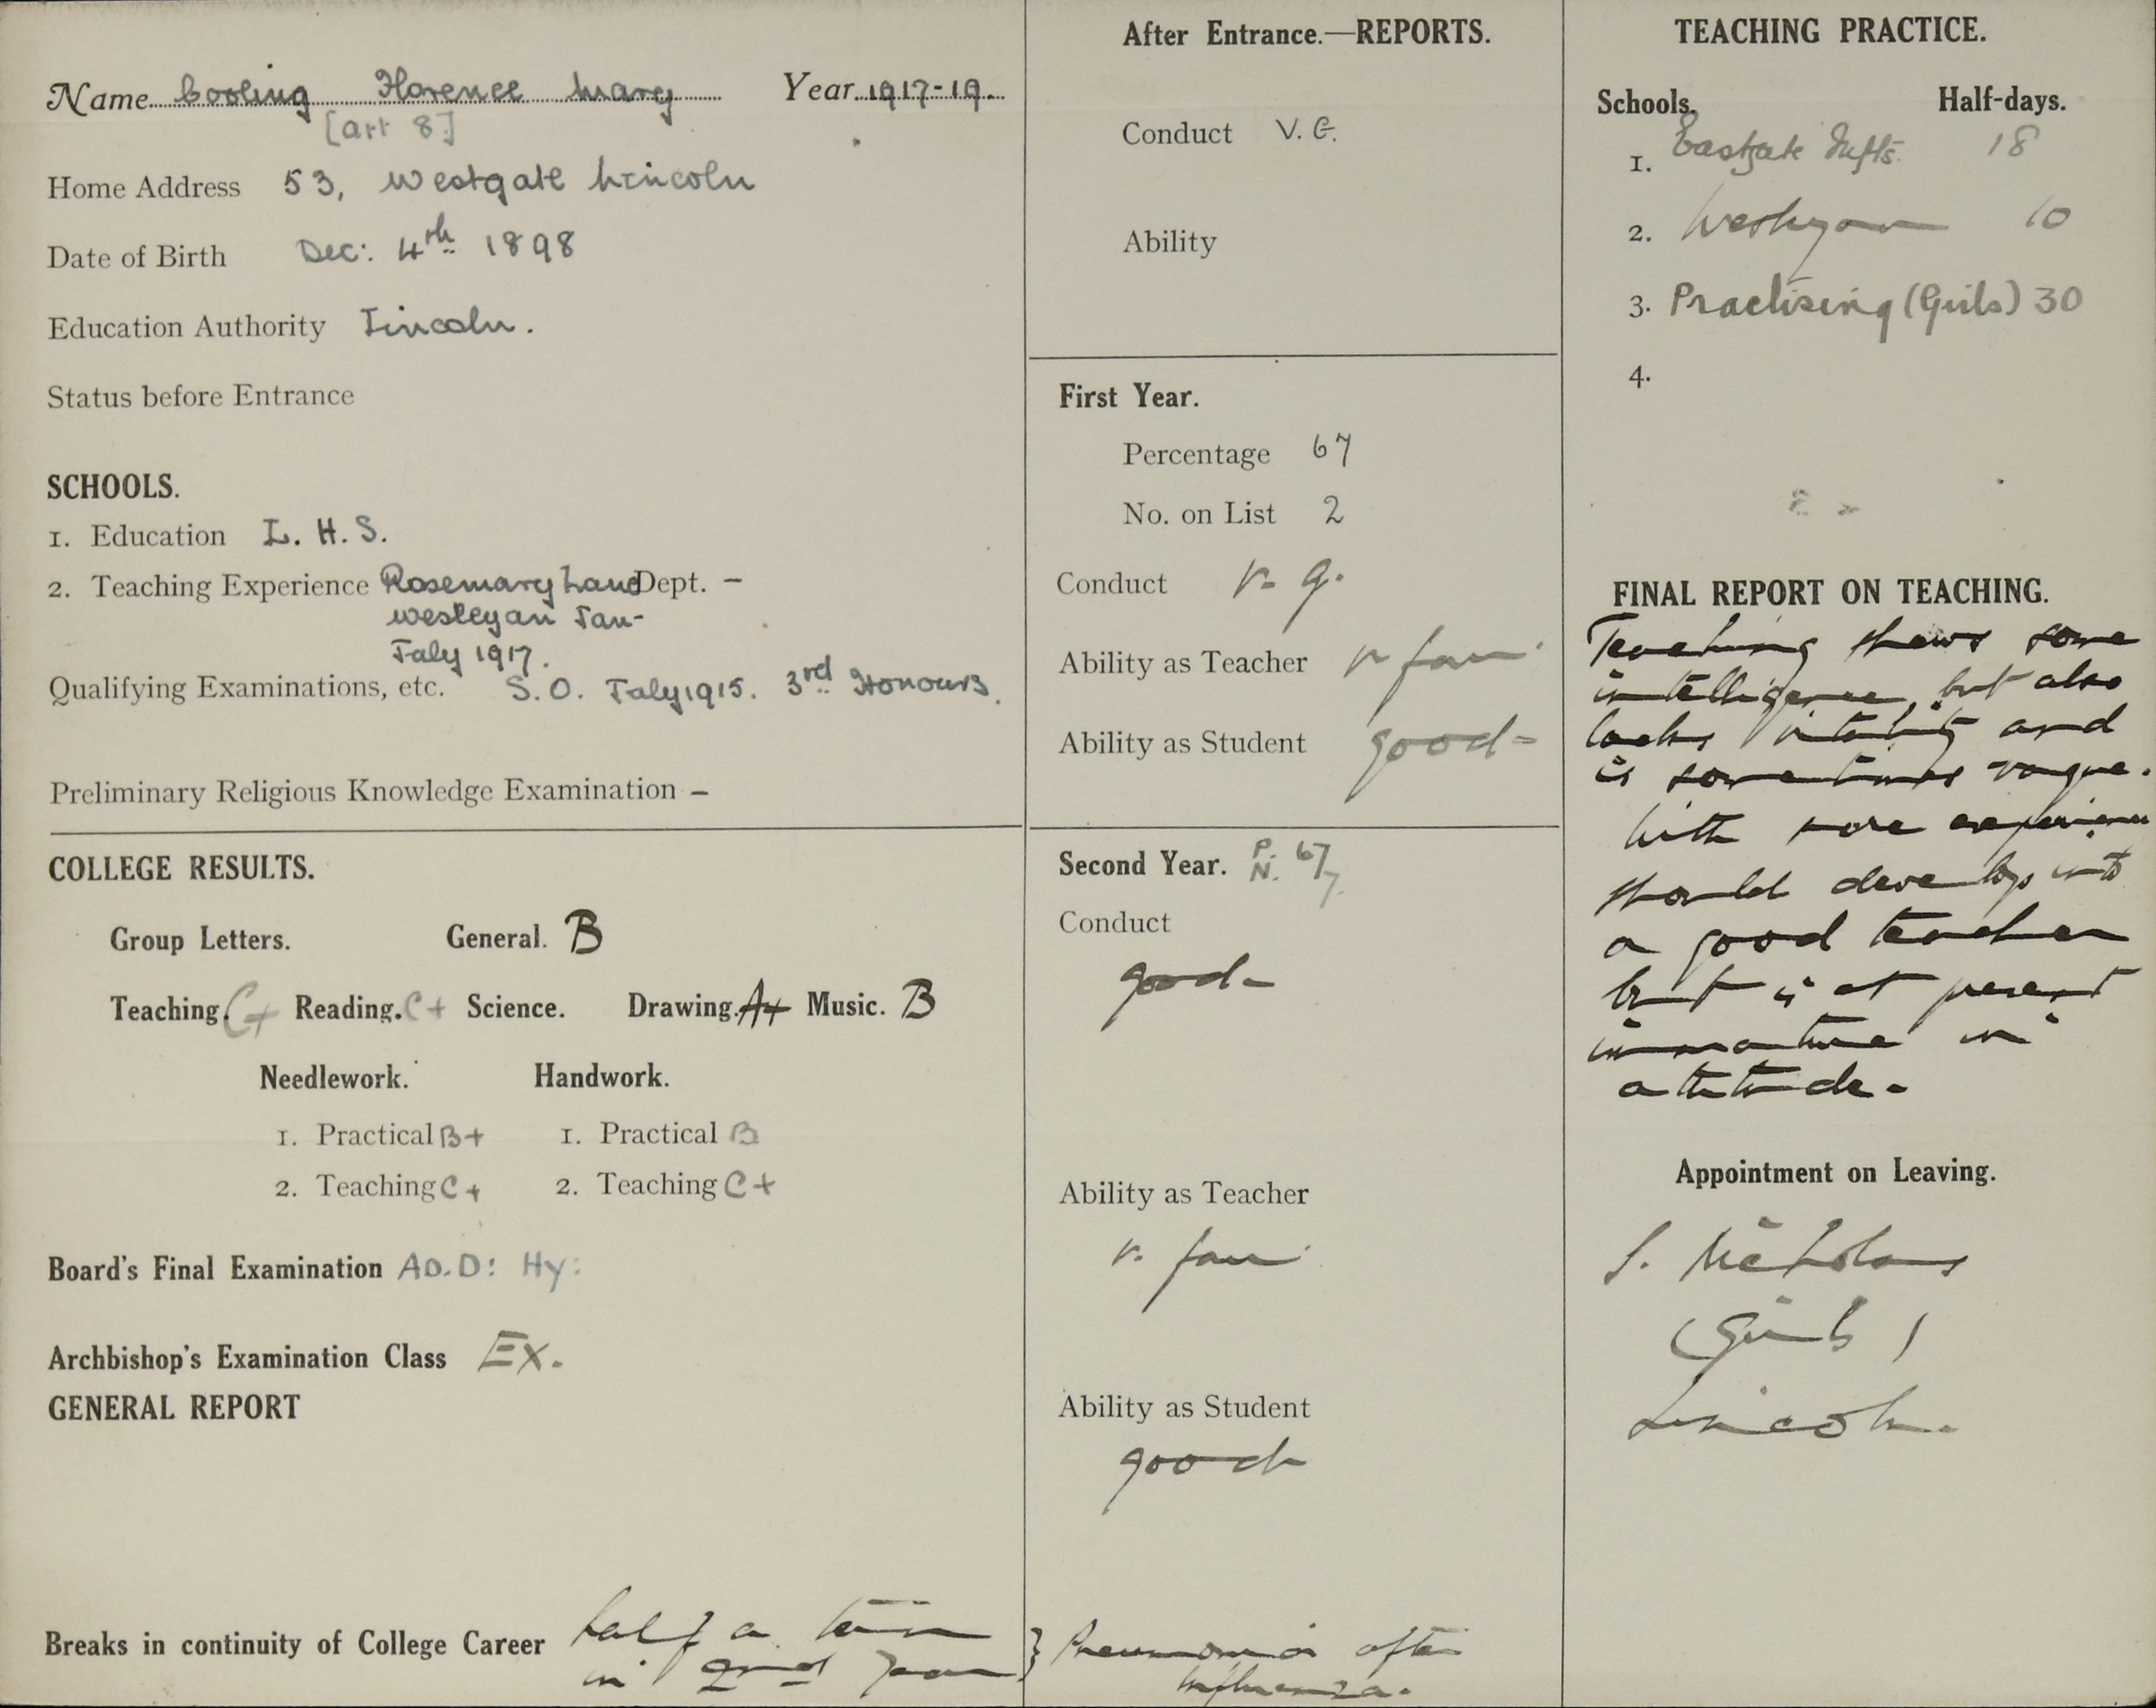 Name Cooling Florence Mary Year 1917-19.
[art 8]
Home Address 53, Westgate Lincoln
Date of Birth Dec: 4th 1898
Education Authority Lincoln.
Status before Entrance
SCHOOLS.
1. Education L. H. S.
2. Teaching Experience Rosemary Lane Dept. –
Wesleyan Jan-
July 1917.
Qualifying Examinations, etc. S.O. July 1915. 3rd Honours.
Preliminary Religious Knowledge Examination –
COLLEGE RESULTS.
Group Letters. General. B
Teaching. C+ Reading. C+ Science. Drawing. A+ Music. B
Needlework. Handwork.
1. Practical B+ 1. Practical B
2. Teaching C+ 2. Teaching C+
Board's Final Examination AD.D: Hy:
Archbishop's Examination Class Ex.
GENERAL REPORT
Breaks in continuity of College Career half a term
in 2nd year } Pneumonia after
influenza.
After Entrance.—REPORTS.
Conduct V. G.
Ability
First Year.
Percentage 67
No. on List 2
Conduct v. g.
Ability as Teacher v fair
Ability as Student good-
Second Year. P. 67
N. 7.
Conduct
good-
Ability as Teacher
v. fair
Ability as Student
good
TEACHING PRACTICE.
Schools. Half-days.
1. Eastgate Infts. 18
2. Wesleyan 10
3. Practising (Girls) 30
4.
FINAL REPORT ON TEACHING.
Teaching shews some
intelligence, but also
lacks vitality and
is sometimes vague.
With more experience
should develop into
a good teacher
but is at present
immature in
attitude-
Appointment on Leaving.
S. Nicholas
(Girls)
Lincoln.